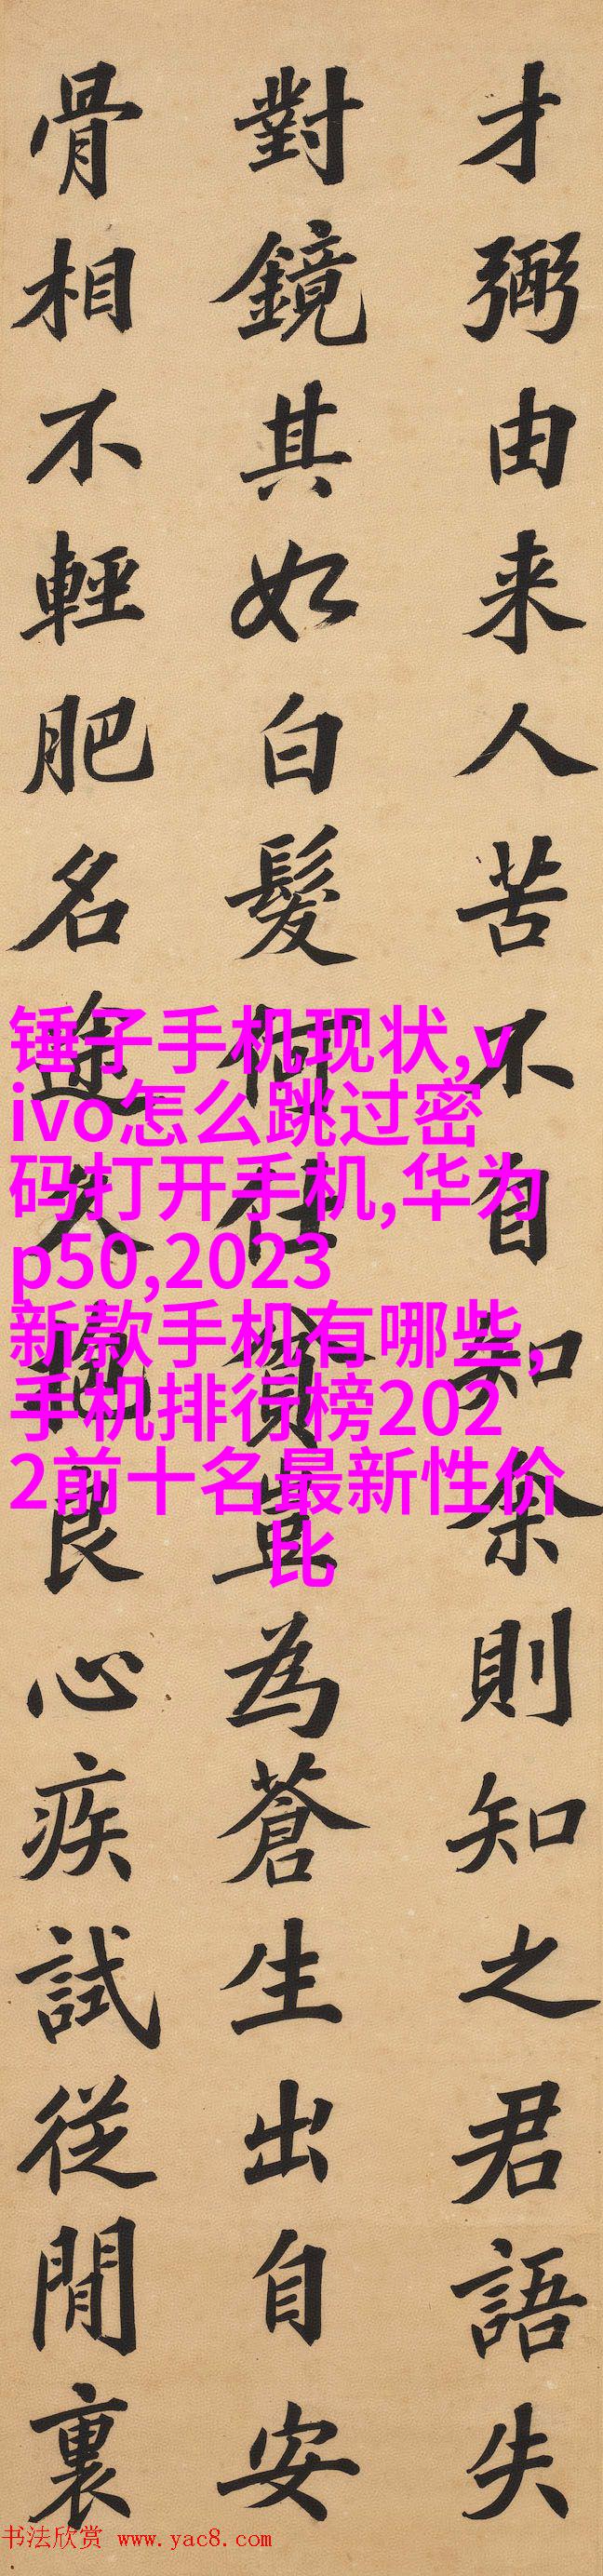 才弼由来人苦不自知余則知之君語失
對鏡其如白髮何仕貧豈為蒼生出自安
骨相不輕肥名途久良心疾試從閒裏
锤子手机现状,v
ivo怎么跳过密
码打开手机,华为
p50,2023
新款手机有哪些,
手机排行榜202
2前十名最新性价
比
书法欣赏 www.yac8.com